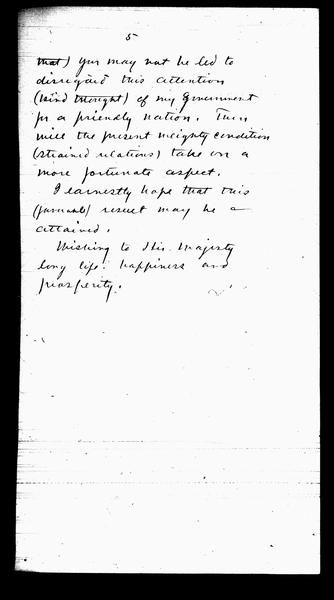 5
that) you may not be led to
disregard this attention
(kind thought) of my Government
for a friendly nation. Then
will the present weighty condition
(strained relations) take on a
more fortunate aspect.
I earnestly hope that this
result may be
attained.
Wishing to His Majesty
long life, happiness and
prosperity.